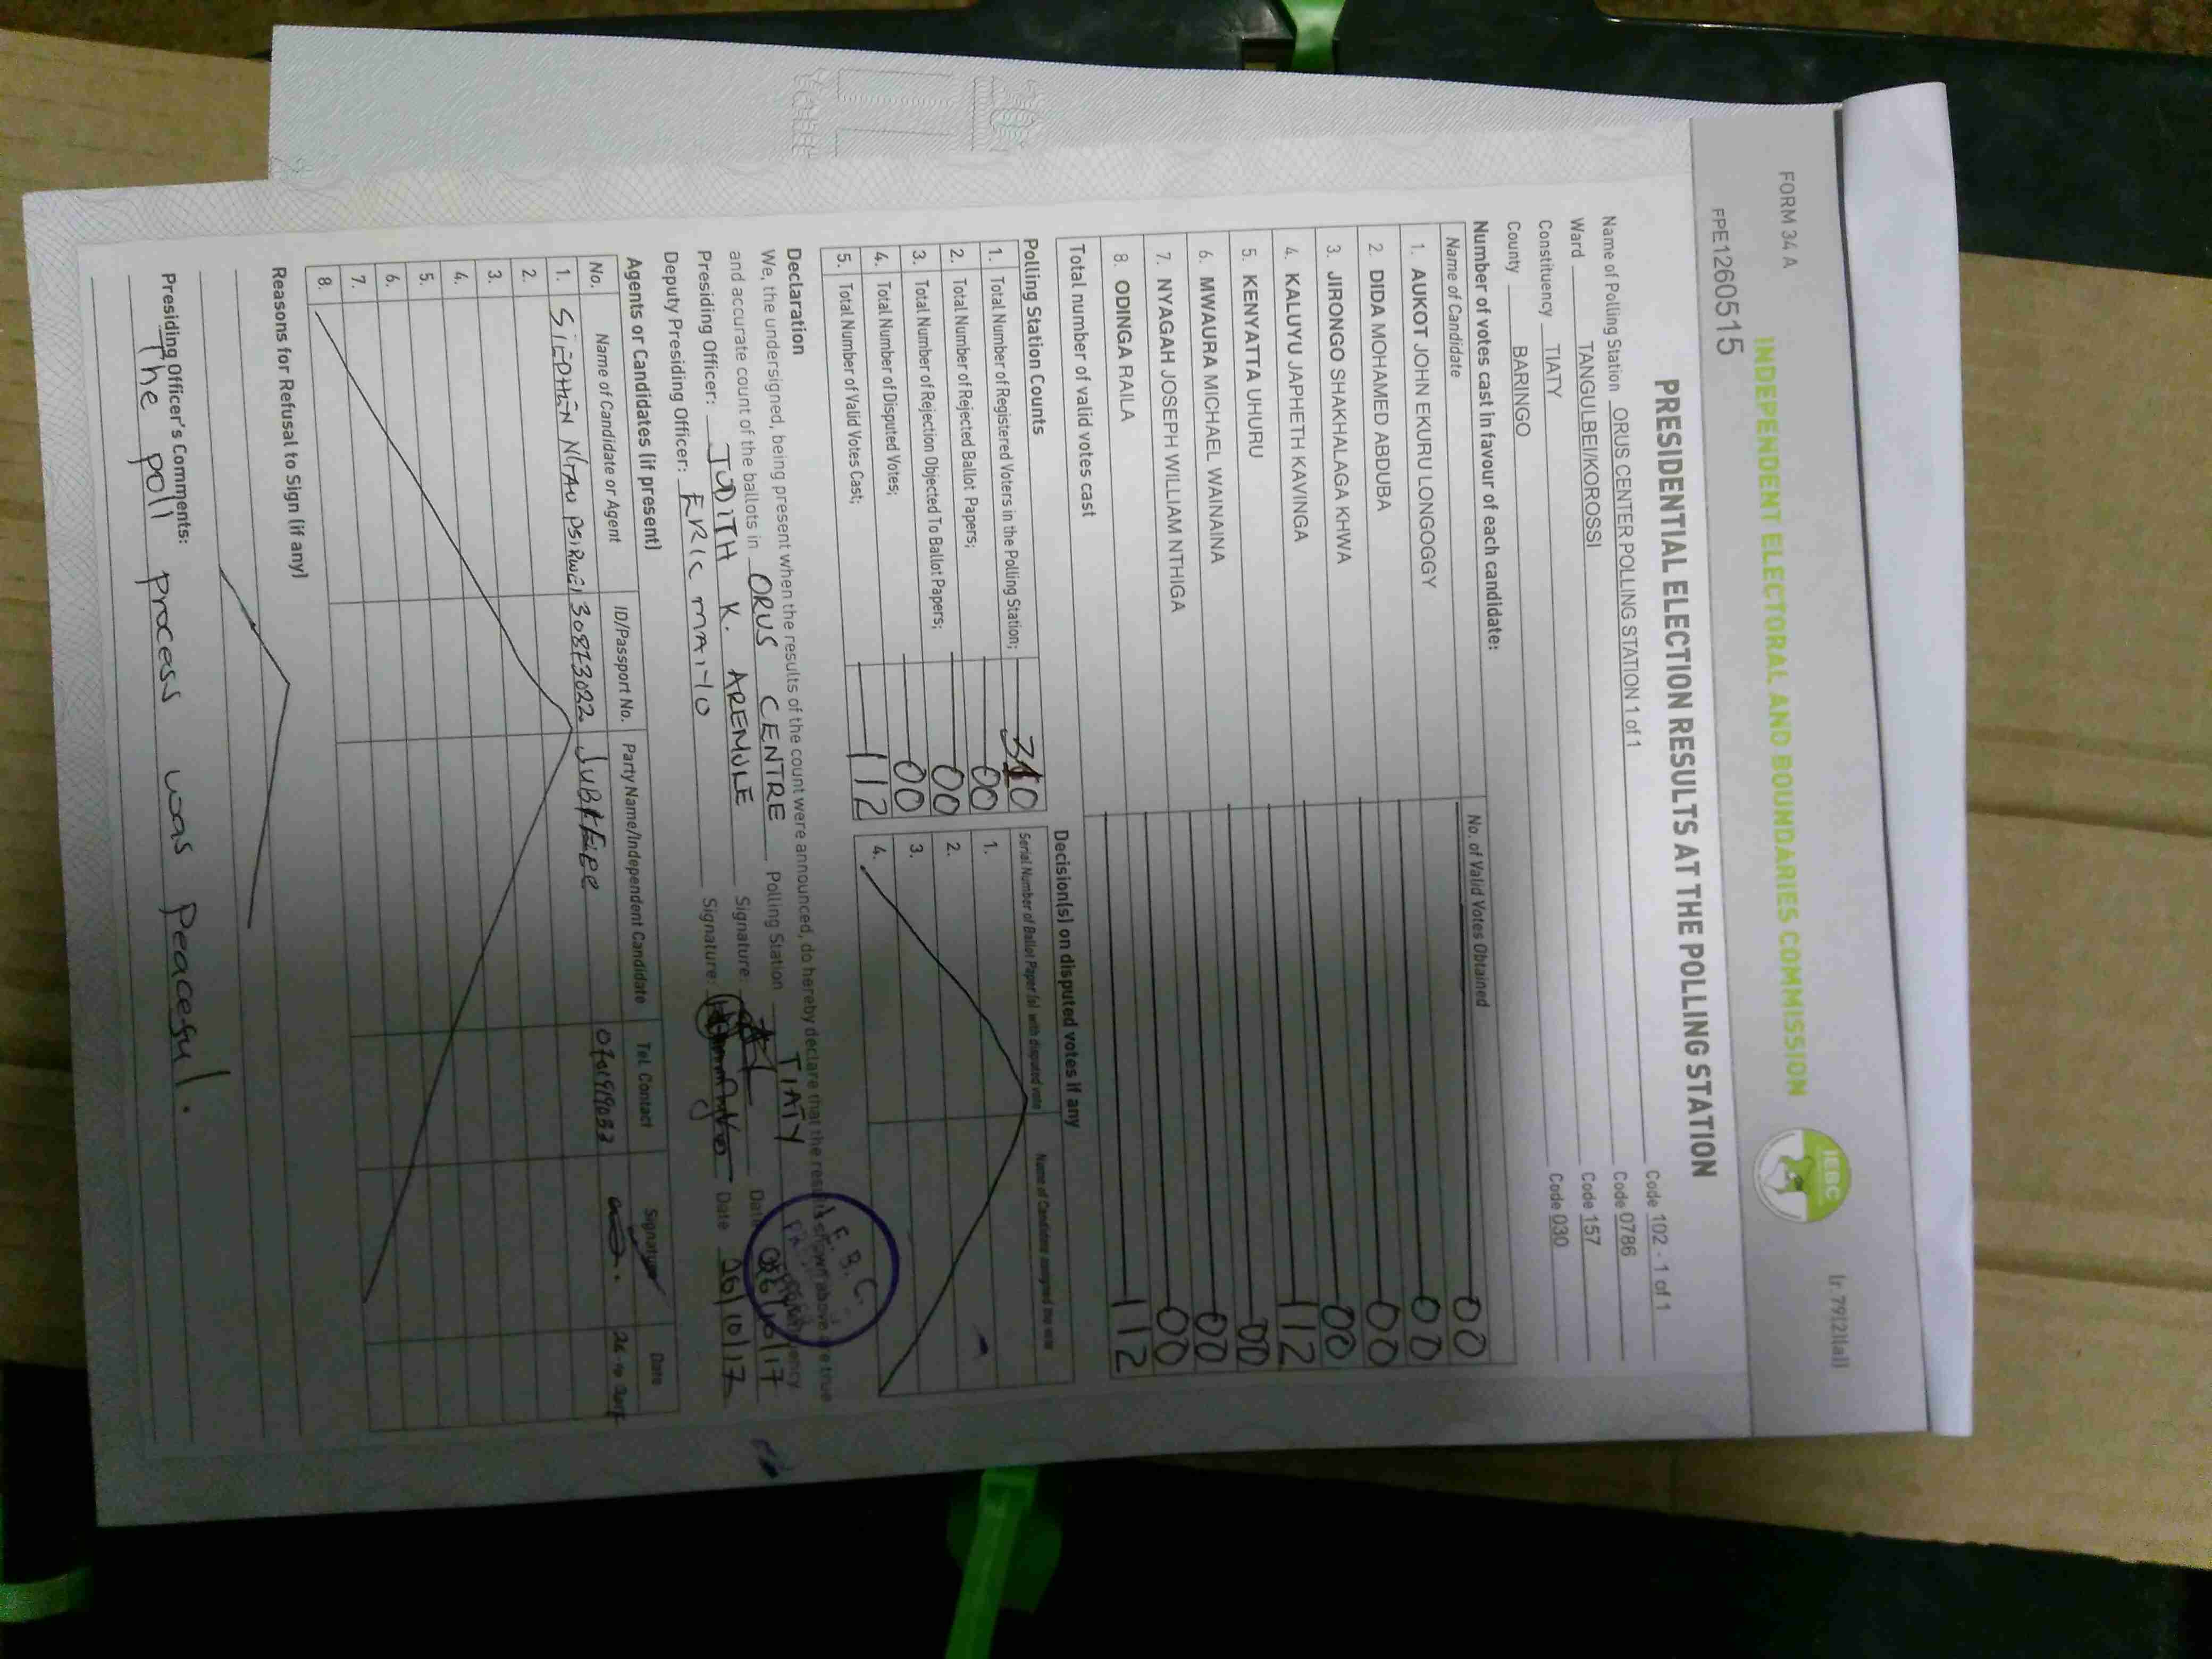 FORM 34 A
Ir 79(2)(a)]
INDEPENDENT ELECTORAL AND BOUNDARIES COMMISSION
IEBC
FPE1260515
PRESIDENTIAL ELECTION RESULTS AT THE POLLING STATION
Name of Polling Station ORUS CENTER POLLING STATION 1 of 1 Code 102 - 1 of 1
Ward TANGULBEI/KOROSSI Code 0786
Constituency TIATY Code 157
County BARINGO Code 030
Number of votes cast in favour of each candidate:
Name of Candidate No. of Valid Votes Obtained
1. AUKOT JOHN EKURU LONGOGGY 00
2. DIDA MOHAMED ABDUBA 00
3. JIRONGO SHAKHALAGA KHWA 00
4. KALUYU JAPHETH KAVINGA 00
5. KENYATTA UHURU 112
6. MWAURA MICHAEL WAINAINA 00
7. NYAGAH JOSEPH WILLIAM NTHIGA 00
8. ODINGA RAILA 00
Total number of valid votes cast 112
Polling Station Counts
1. Total Number of Registered Voters in the Polling Station; 310
2. Total Number of Rejected Ballot Papers; 00
3. Total Number of Rejection Objected To Ballot Papers; 00
4. Total Number of Disputed Votes; 00
5. Total Number of Valid Votes Cast; 112
Decision(s) on disputed votes if any
Serial Number of Ballot Paper (s) with disputed vote Name of Candidate assigned the vote
1.
2.
3.
4.
Declaration
We, the undersigned, being present when the results of the count were announced, do hereby declare that the results shown above are true
and accurate count of the ballots in ORUS CENTRE Polling Station TIATY
Presiding Officer: JUDITH K. AREMULE Signature: Date 26/10/17
Deputy Presiding Officer: ERIC Signature: Date 26/10/17
I.E.B.C.
Agents or Candidates (if present)
No. Name of Candidate or Agent ID/Passport No. Party Name/Independent Candidate Tel. Contact Signature Date
1. 30873022 JUBILEE
2.
3.
4.
5.
6.
7.
8.
Reasons for Refusal to Sign (if any)
Presiding Officer's Comments:
The poll process was peaceful.